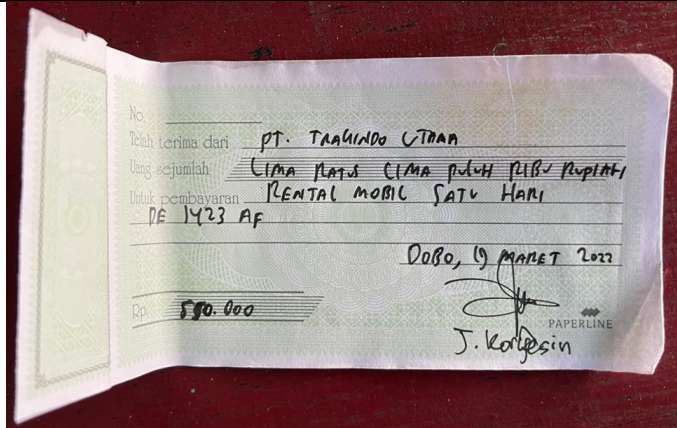 No.
Telah terima dari PT. TRAKINDO UTAMA
Uang sejumlah LIMA RATUS LIMA PULUH RIBU RUPIAH
Untuk pembayaran RENTAL MOBIL SATU HARI
DE 1423 AF
DOBO, 19 MARET 2022
Rp. 550.000
PAPERLINE
J.